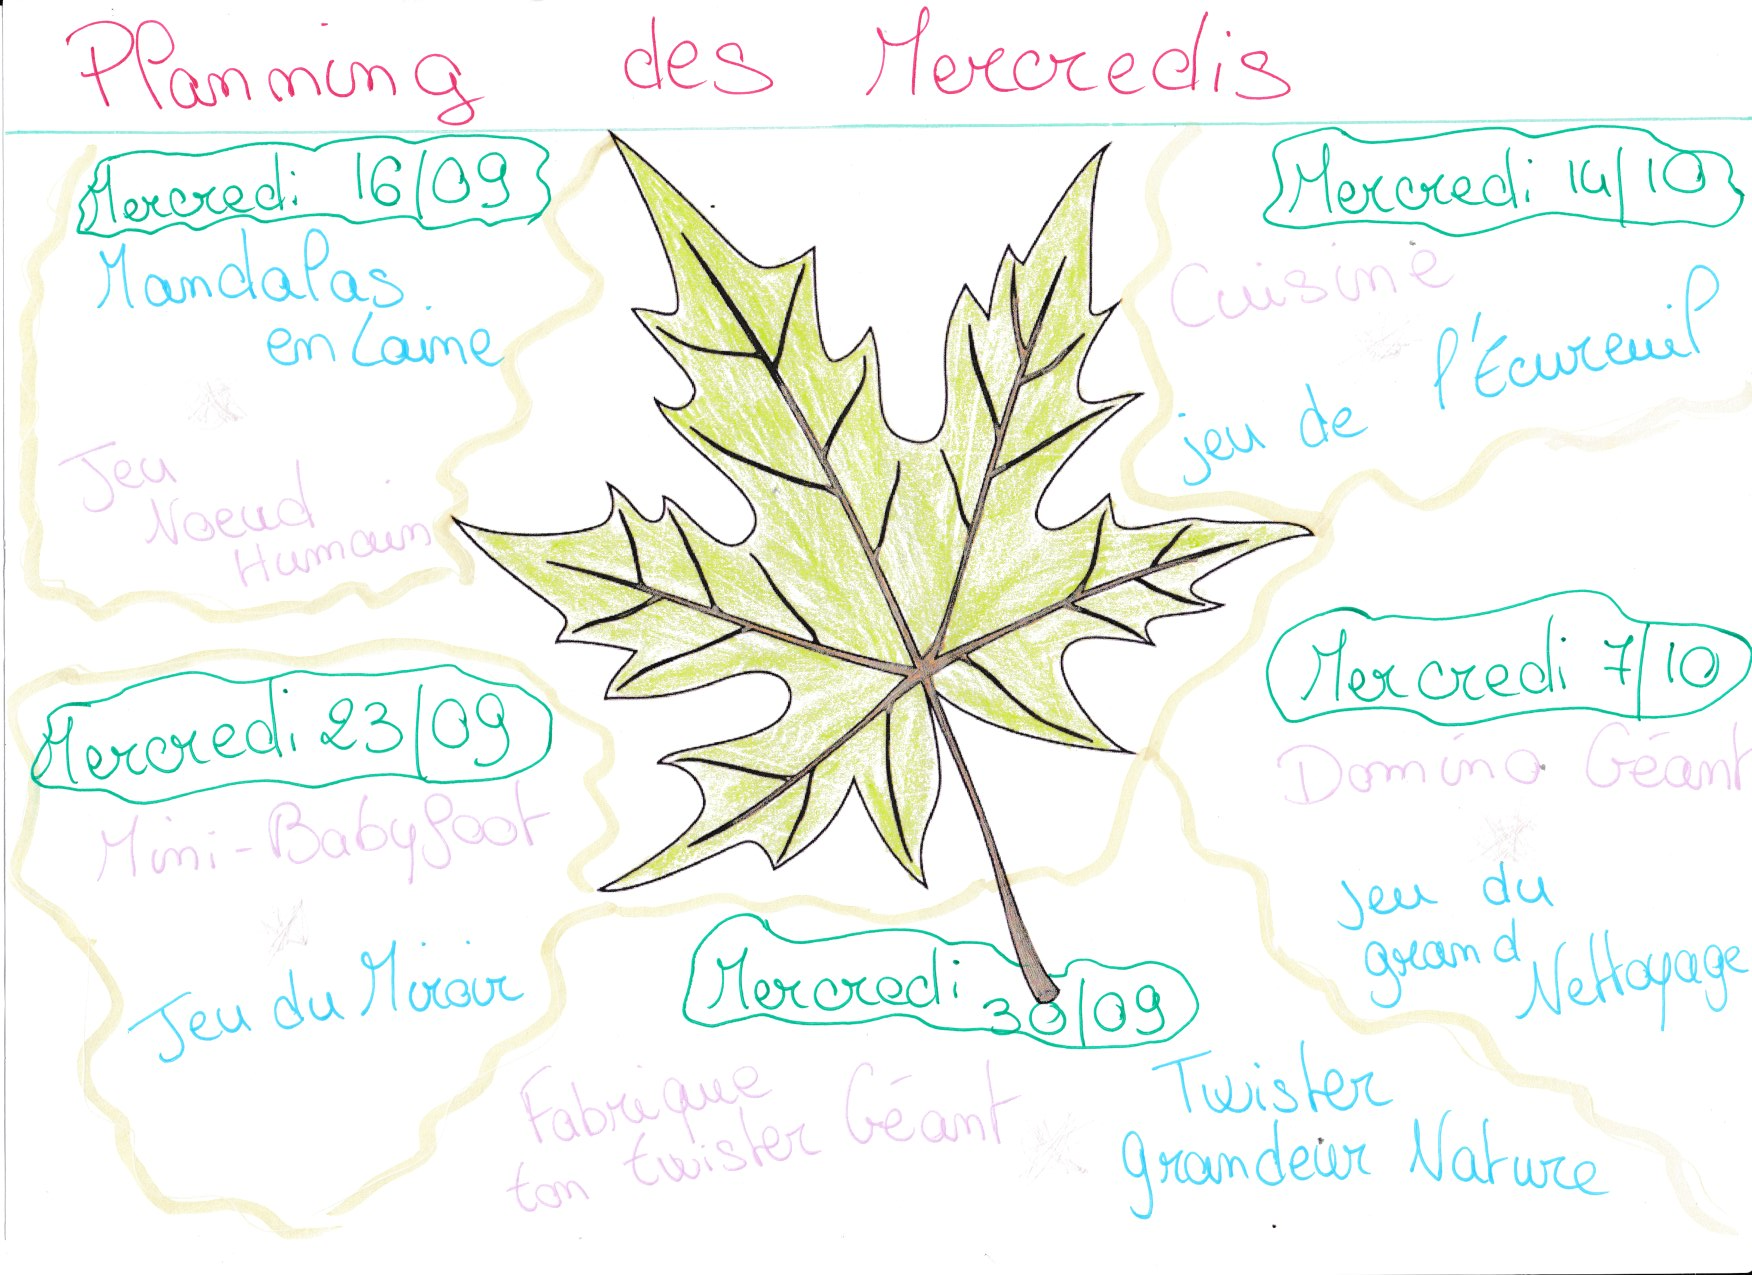 Planning des Mercredis
Mercredi 16/09
Mandalas
en Laine
Jeu
Noeud
Humain
Mercredi 23/09
Mini-Babyfoot
Jeu du Miroir
Mercredi 30/09
Fabrique
ton twister Géant
Twister
grandeur Nature
Mercredi 7/10
Domino Géant
Jeu du
grand
Nettoyage
Mercredi 14/10
Cuisine
jeu de l'Écureuil